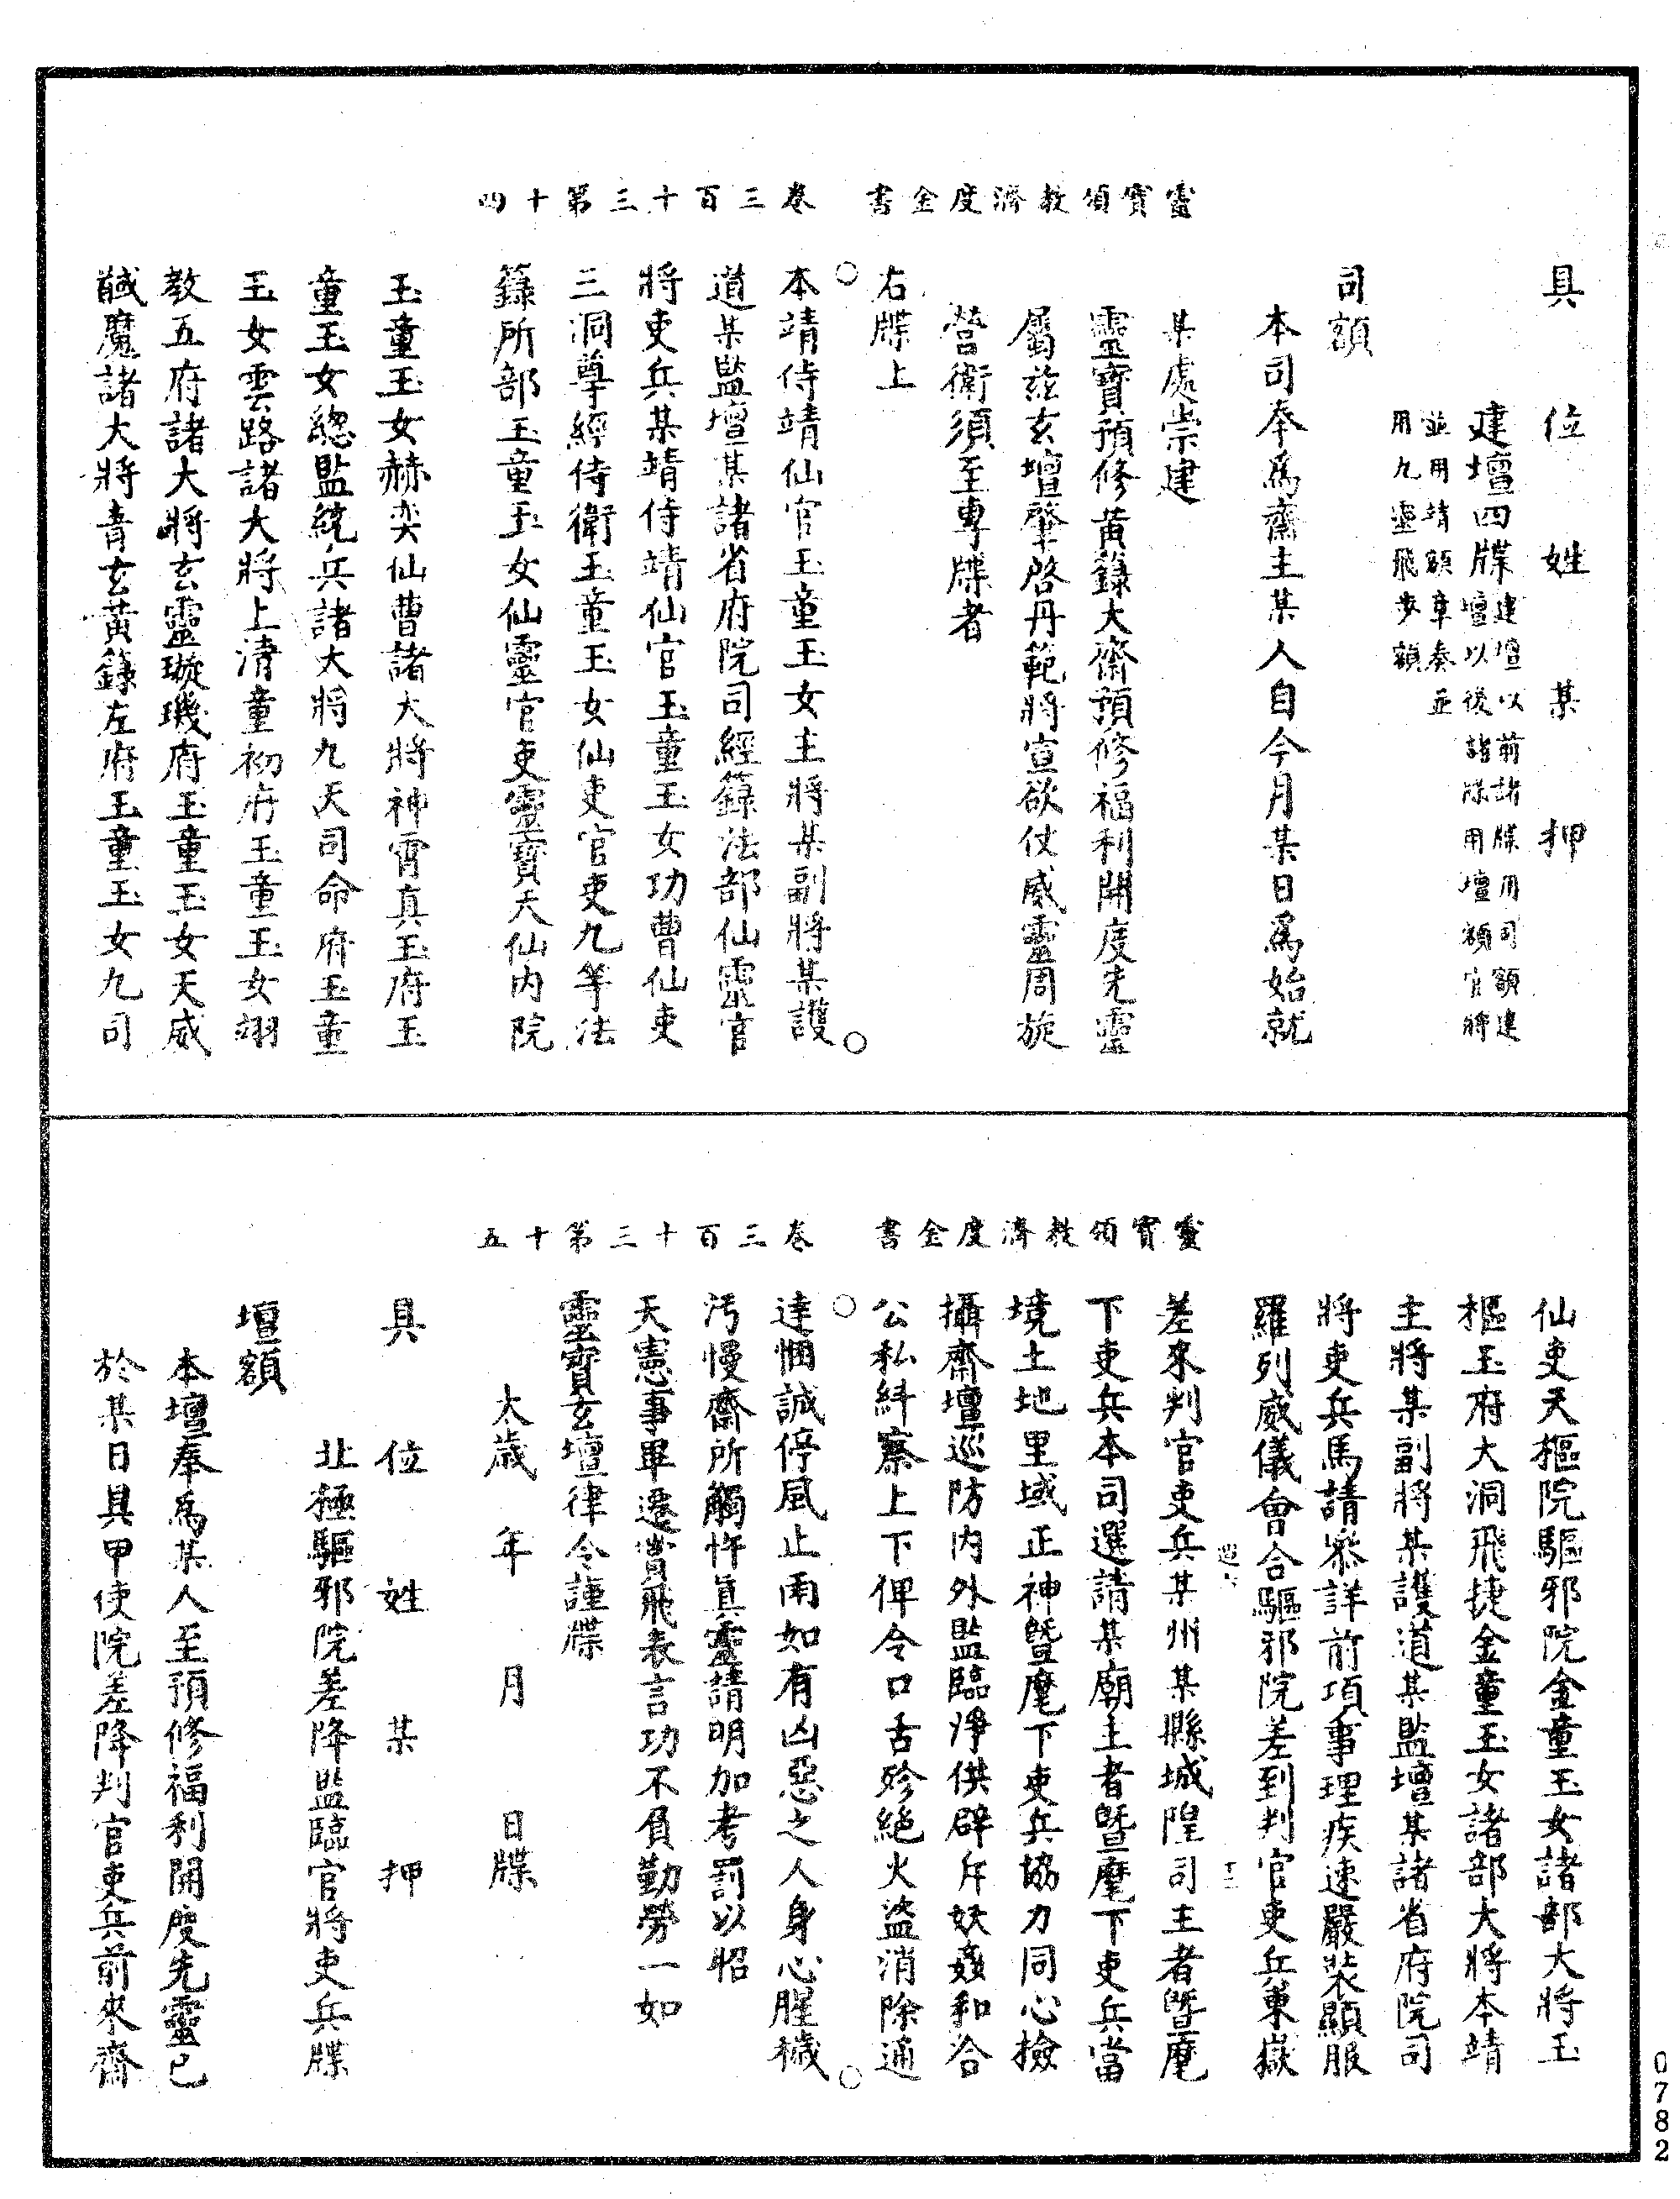 靈寶領教濟度金書　卷三百十三第十四
具位姓某押
建壇四牒
建壇以前諸牒用司額建
壇以後諸牒用壇額官將
並用靖額章奏並
用九靈飛步額
司額
本司奉爲齋主某人自今月某日爲始就
某處崇建
靈寶預修黃籙大齋預修福利開度先靈
屬兹玄壇肇啓丹範將宣欲仗威靈周旋
營衛須至專牒者
右牒上
本靖侍靖仙官玉童玉女主將某副將某護
道某監壇某諸省府院司經籙法部仙靈官
將吏兵某靖侍靖仙官玉童玉女功曹仙吏
三洞尊經侍衛玉童玉女仙吏官吏九等法
籙所部玉童玉女仙靈官吏靈寶天仙内院
玉童玉女赫奕仙曹諸大將神霄真玉府玉
童玉女總監統兵諸大將九天司命府玉童
玉女雲路諸大將上清童初府玉童玉女翊
教五府諸大將玄靈璇璣府玉童玉女天威
馘魔諸大將青玄黃籙左府玉童玉女九司
靈寶領教濟度金書　卷三百十三第十五
仙吏天樞院驅邪院金童玉女諸部大將玉
樞玉府大洞飛捷金童玉女諸部大將本靖
主將某副將某護道某監壇某諸省府院司
將吏兵馬請叅詳前項事理疾速嚴裝顯服
羅列威儀會合驅邪院差到判官吏兵東嶽
差來判官吏兵某州某縣城隍司主者曁麾
下吏兵本司選請某廟主者曁麾下吏兵當
境土地里域正神曁麾下吏兵協力同心撿
攝齋壇巡防内外監臨淨供辟斥妖姦和合
公私糾察上下俾令口舌殄絶火盜消除通
達悃誠停風止雨如有凶惡之人身心腥穢
汚慢齋所觸忤眞靈請明加考罰以昭
天憲事畢遷賞飛表言功不負勤勞一如
靈寶玄壇律令謹牒
太歲年月日牒
具位姓某押
北極驅邪院差降監臨官將吏兵牒
壇額
本壇奉爲某人至預修福利開度先靈已
於某日具甲使院差降判官吏兵前來齋
0782